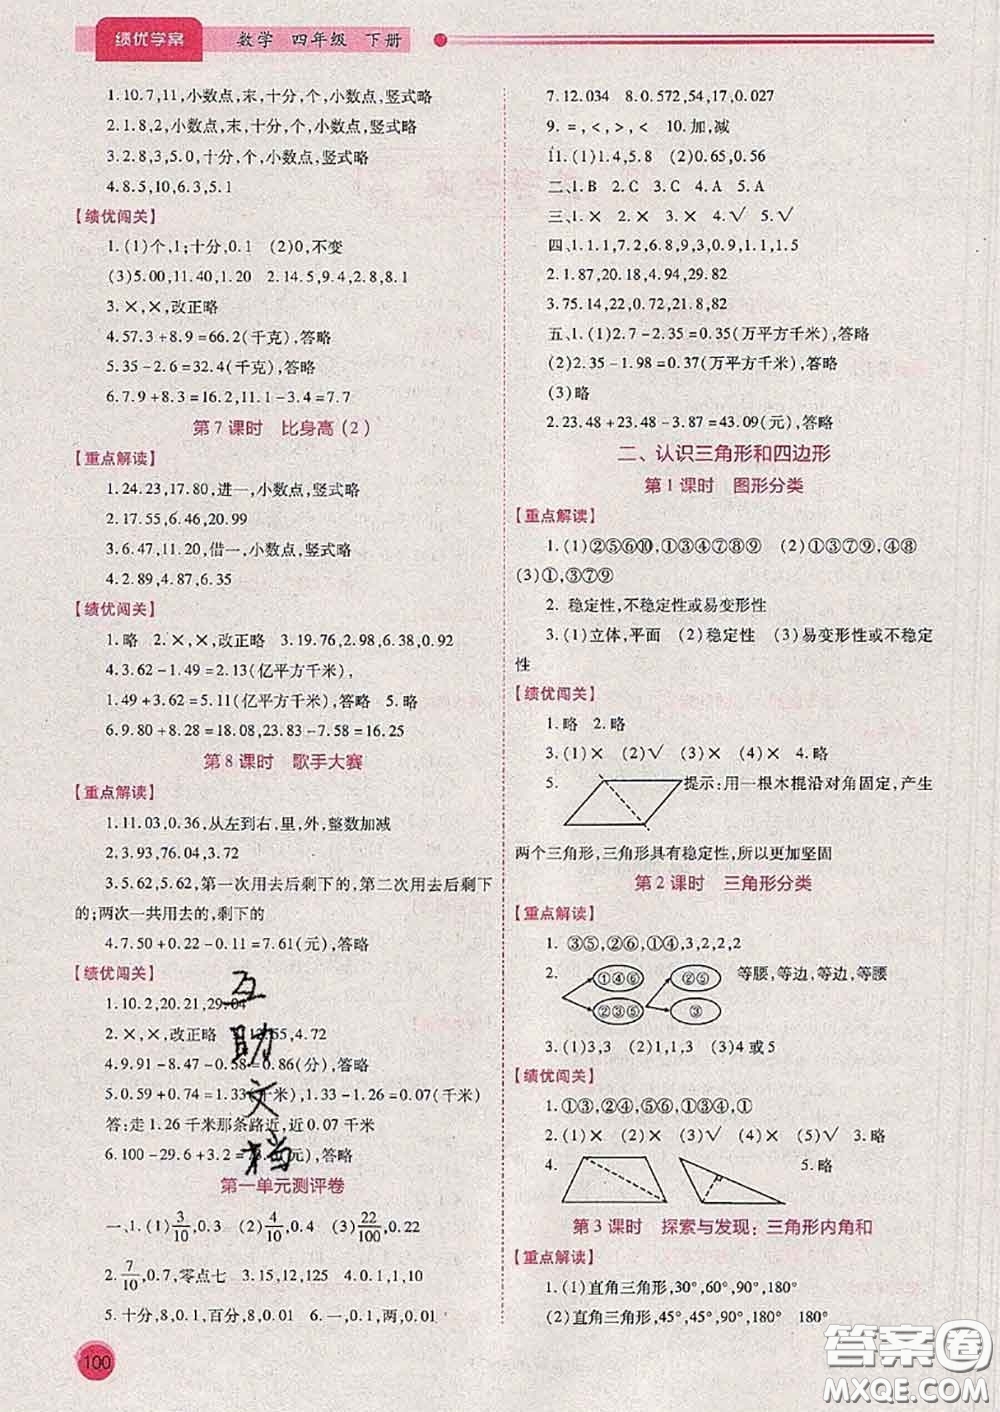 绩优学案 数学 四年级 下册
1.10.7,11,小数点,末,十分,个,小数点,竖式略
2.1.8,2,小数点,末,十分,个,小数点,竖式略
3.2.8,3,5.0,十分,个,小数点,竖式略
4.8.5,10,6.3,5.1
【绩优闯关】
1.(1)个,1;十分,0.1 (2)0,不变
(3)5.00,11.40,1.20 2.14.5,9.4,2.8,8.1
3.×,×,改正略
4.57.3+8.9=66.2(千克),答略
5.35-2.6=32.4(千克),答略
6.7.9+8.3=16.2,11.1-3.4=7.7
第7课时 比身高(2)
【重点解读】
1.24.23,17.80,进一,小数点,竖式略
2.17.55,6.46,20.99
3.6.47,11.20,借一,小数点,竖式略
4.2.89,4.87,6.35
【绩优闯关】
1.略 2.×,×,改正略 3.19.76,2.98,6.38,0.92
4.3.62-1.49=2.13(亿平方千米),
1.49+3.62=5.11(亿平方千米),答略 5.略
6.9.80+8.28=18.08,23.83-7.58=16.25
第8课时 歌手大赛
【重点解读】
1.11.03,0.36,从左到右,里,外,整数加减
2.3.93,76.04,3.72
3.5.62,5.62,第一次用去后剩下的,第二次用去后剩下
的;两次一共用去的,剩下的
4.7.50+0.22-0.11=7.61(元),答略
【绩优闯关】
1.10.2,20.21,29.04
2.×,×,改正略 4.72
4.9.91-8.47-0.58=0.86(分),答略
5.0.59+0.74=1.33(千米),1.33-1.26=0.07(千米)
答:走1.26千米那条路近,近0.07千米
6.100-29.6+3.2= (元),答略
互助文档
第一单元测评卷
一、1.(1)3/10,0.3 (2)4/10,0.4 (3)22/100,0.22
2.7/10,0.7,零点七 3.15,12,125 4.0.37,0.46
5.十分,8,0.1,百分,8,0.01 6.一,0.1,两,0.01
100
7.12.034 8.0.572,54,17,0.027
9.=,<,>,< 10.加,减
11.(1)1.4,5.8 (2)0.65,0.56
二、1.B 2.C 3.A 4.A 5.B
三、1.× 2.× 3.× 4.√ 5.√
四、1.1.1,7.2,6.8,9,3,0.9,1.1,1.5
2.1.87,20.18,4.94,29.82
3.75.14,22,0.72,21.8,82
五、1.(1)2.7-2.35=0.35(万平方千米),答略
(2)2.35-1.98=0.37(万平方千米),答略
(3)略
2.23.48+23.48-3.87=43.09(元),答略
二、认识三角形和四边形
第1课时 图形分类
【重点解读】
1.(1)②⑤⑥⑩,①③④⑦⑧⑨ (2)①③⑦⑨,④⑧
(3)①,③⑦⑨
2. 稳定性,不稳定性或易变形性
3.(1)立体,平面 (2)稳定性 (3)易变形性或不稳定
性
【绩优闯关】
1.略 2.略
3.(1)× (2)√ (3)× (4)× 4.略
5. 提示:用一根木棍沿对角固定,产生
两个三角形,三角形具有稳定性,所以更加坚固
第2课时 三角形分类
【重点解读】
1. ③⑤,②⑥,①④,3,2,2,2
2. ①④⑥ ②⑤ 等腰,等边,等边,等腰
②③⑤ ③
3.(1)3,3 (2)1,3,4 (3)4或5
【绩优闯关】
1.①③,②⑤,④⑥,③④,①
2.(1)× (2)× (3)√ (4)× (5)√ 3.略
4. 5.略
第3课时 探索与发现:三角形内角和
【重点解读】
1.(1)直角三角形,30°,60°,90°,180°
(2)直角三角形,45°,45°,90°,180° 180°
答案圈
MXQE.COM